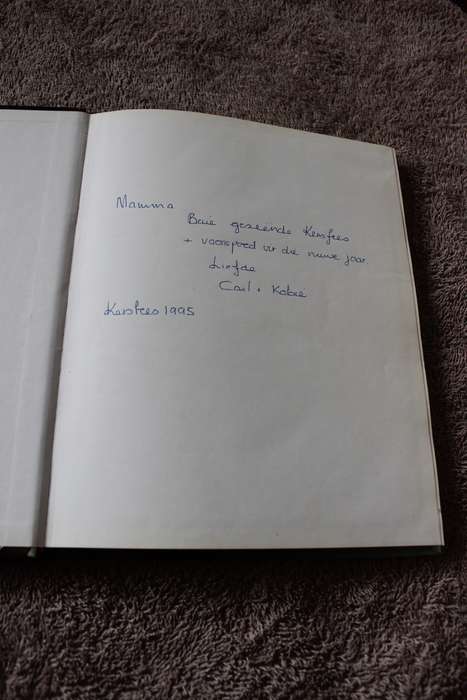 Mamma
Baie geseënde Kersfees
+ voorspoed vir die nuwe jaar.
Liefde
Carl + Kobie
Kersfees 1995